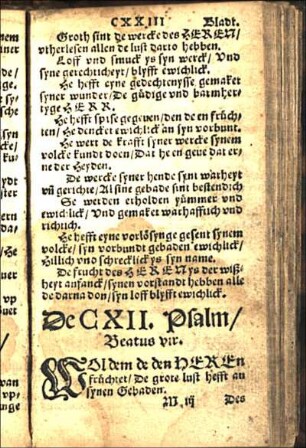 CXXIII Bladt.
Groth sint de wercke des HEREN/
vtherlesen allen de lust darto hebben.
Loff vnd smuck ys syn werck/ Vnd
syne gerechticheyt/ blyfft ewichlick.
He hefft eyne gedechtenysse gemaket
syner wunder/ De güdige vnd barmher-
tyge HERR.
He hefft spise gegeven/ den de en früch-
ten/ He dencket ewichlick an syn vorbunt.
He lett de krafft syner wercke synem
volcke kundt doen/ Dat he en geve dat er-
ne der Heyden.
De wercke syner hende synt warheyt
vñ gerichte/ Al sine gebade sint bestendich
Se werden erholden ymmer vnd
ewichlick/ Vnd gemaket warhafftich vnd
richtich.
He hefft eyne vorlösynge gesent synem
volcke/ syn vorbundt gebaden ewichlick/
Hillich vnd schrecklick ys syn name.
De früchte des HEREN ys der wiß-
heyt anfanck/ synen vorstandt hebben alle
de darna don/ syn loff blyfft ewichlick.
De CXII. Psalm/
Beatus vir.
WOl dem de den HEREN
früchtet/ De grote lust hefft an
synen Gebaden.
M iij Des